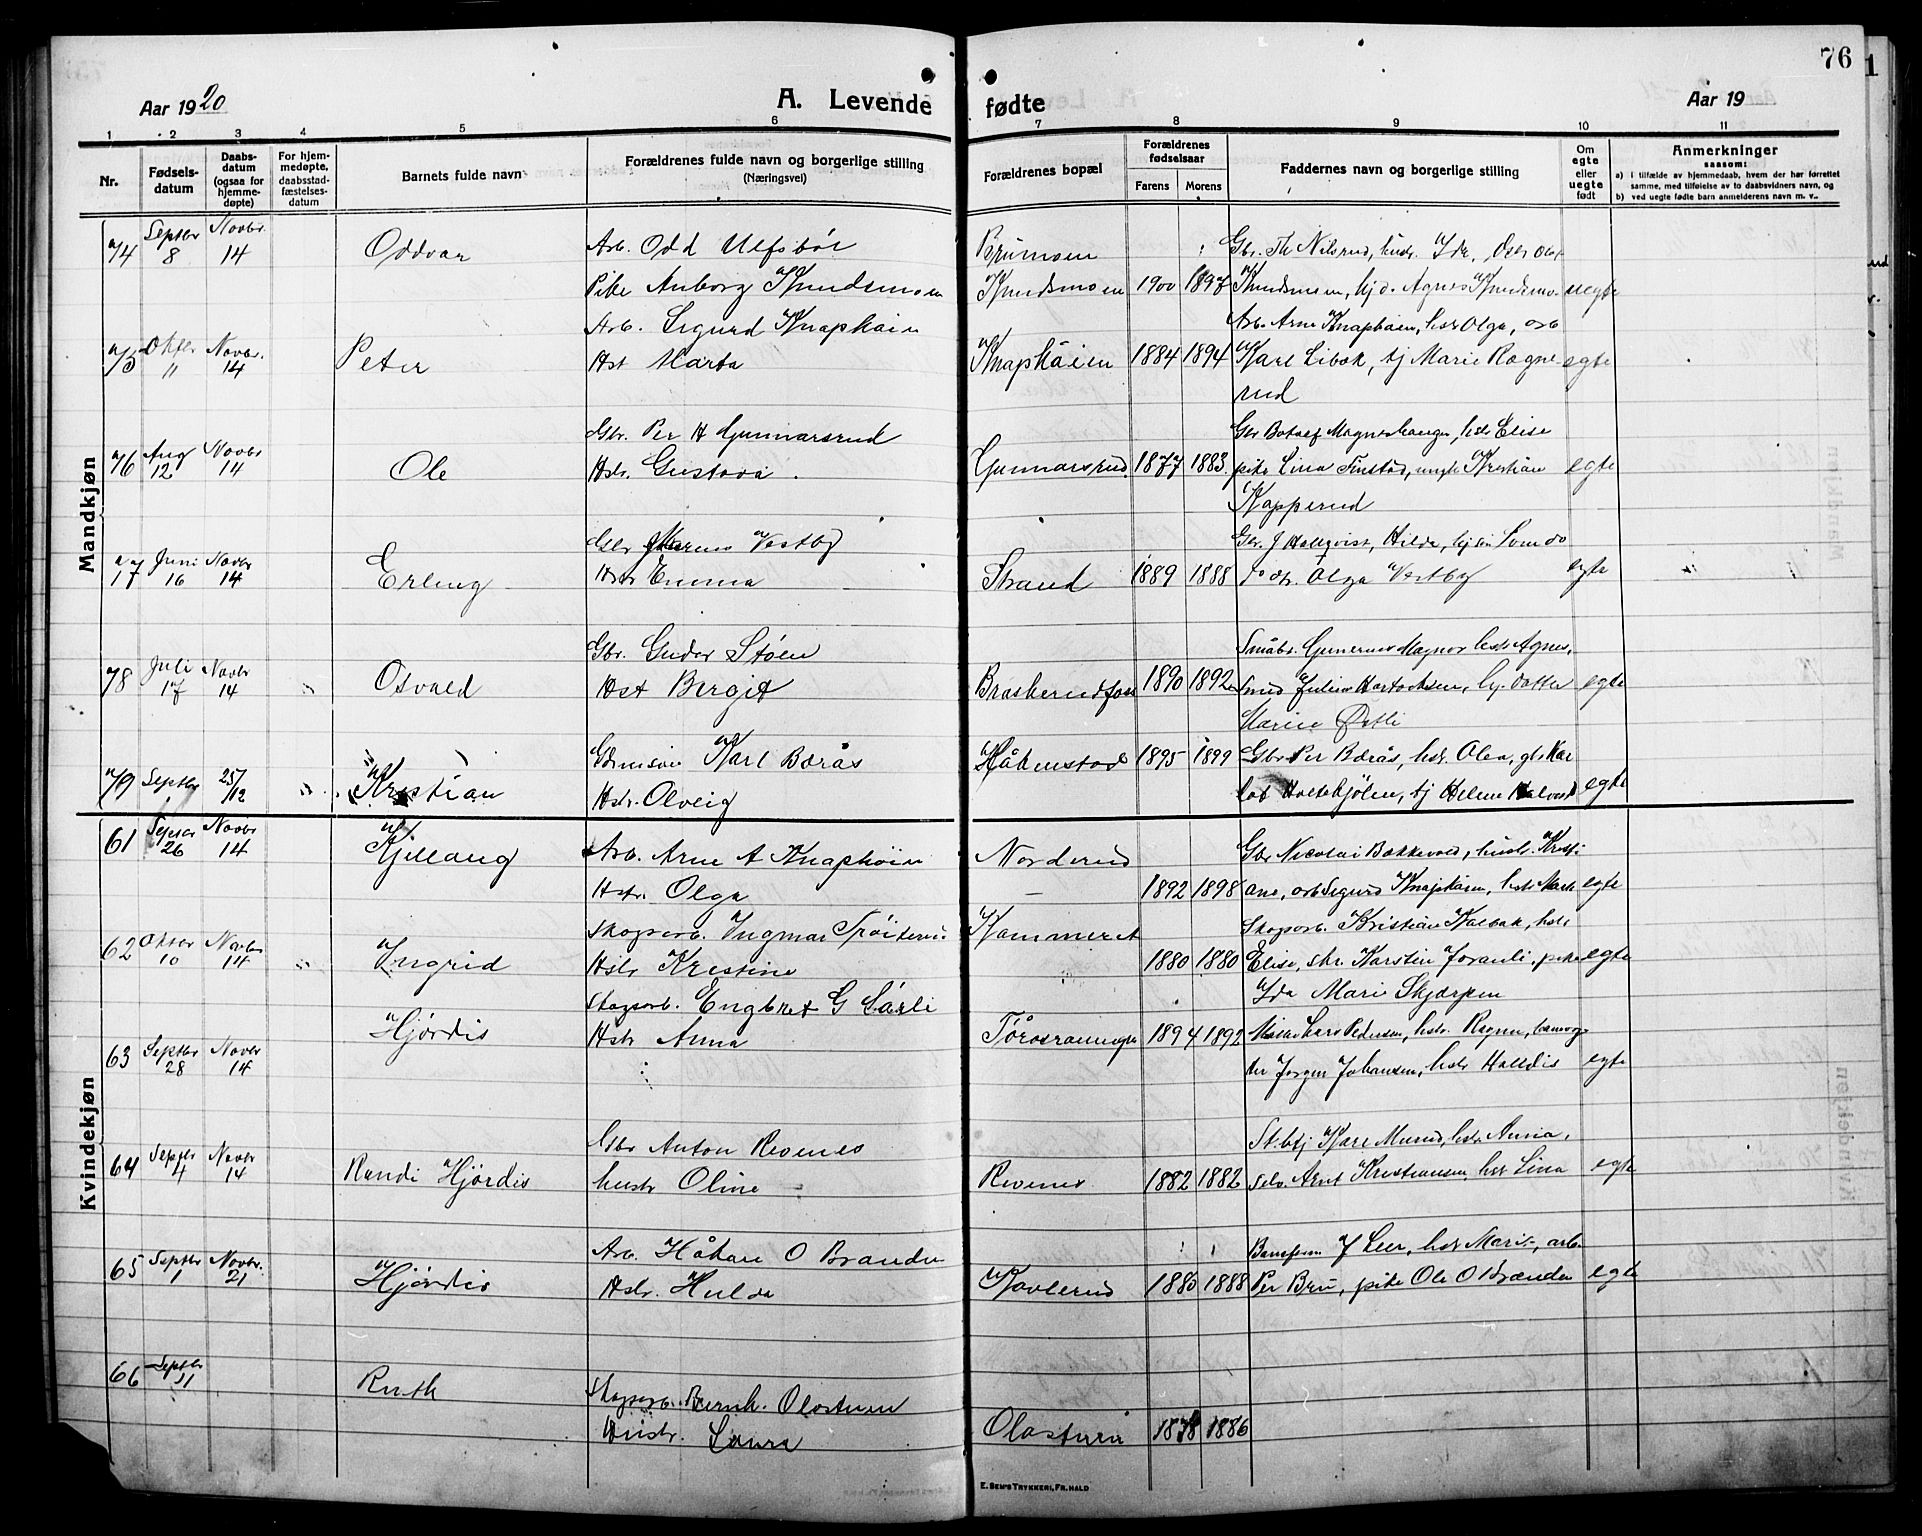 76
Aar 1920
A. Levende fødte
Aar 19
1 2 3 4 5 6 7 8 9 10 11
Nr.
Fødselsdatum
Daabsdatum (ogsaa for hjemmedøpte)
For hjemmedøpte, daabsstadfæstelsesdatum
Barnets fulde navn
Forældrenes fulde navn og borgerlige stilling
(Næringsvei)
Forældrenes bopæl
Forældrenes fødselsaar
Farens Morens
Faddernes navn og borgerlige stilling
Om egte eller uegte født
Anmerkninger
saasom:
a) i tilfælde av hjemmedaab, hvem der har forrettet samme, med tilføielse av to daabsvidners navn, og
b) ved uegte fødte barn anmelderens navn m. v..
Mandkjøn
74 Septbr 8 Novbr. 14 Oddvar
Arb. Odd Ulfsbøl
Pike Anborg Knudsmoen
Brumoen
Knudsmoen 1900 1897
Gbr. Th Nilsrud, hustr. Ida,
Knudsmoen, Agnes Knudsmo. uegte
75 Oktbr 11 Novbr. 14 Peter
Arb. Sigurd Knaphøien
Hst Marta
Knaphøien 1884 1894
Arb. Arne Knaphøien, hstr Olga, arb
Karl Libæk, tj Marie Rogne-
rud
egte
76 Aug 12 Novbr 14 Ole
Gbr. Per H Gunnarsrud
Hstr. Gustava
Gunnarsrud 1877 1883
Gbr Botolf Magneshaugen, hstr Elise
pike Lina Finstad, ungk Kristian
Kopperud
egte
77 Juni 16 Novbr 14 Erling
Gbr Vestby
Hstr Emma
Strand 1889 1888
Gbr. J Hallqvist, Hilda,
Olga Vestby
egte
78 Juli 17 Novbr 14 Osvald
Gbr. Gudor Støen
Hst Bergit
Braskerudfoss 1890 1892
Småbr. Gunerius Magnor hstr Agnes,
Smed Julius hj. datter
Marie Østli
egte
79 Septbr 25/12 Kristian
Karl Berås
Hstr. Olveig
Håkenstad 1895 1899
Gbr Per Berås, hstr. Olea,
tj Helene
egte
Kvindekjøn
61 Septbr 26 Novbr 14 Kjellaug
Arb. Arne A Knaphøien
Hstr. Olga
Norderud
1892 1898
Gbr Nicolai Bakkevold, hustr. Kristi
ane, arb Sigurd Knaphøien, hstr Mart
egte
62 Oktbr 10 Novbr 14 Ingrid
Skogsarb. Ingmar
Hstr Kristine
Kammeret
1880 1880
Skogsarb. Kristian Kalbak, hstr
Elise, skr. Karsten pike
Ida Marie Skjærpen
egte
63 Septbr 28 Novbr 14 Hjørdis
Skogsarb. Engbret G Sørli
Hstr Anna
1894 1892
Lars Pedersen, hstr. Ragna, banvog
ter Jørgen Johansen, hstr Halldis
egte
64 Septbr 4 Novbr 14 Randi Hjørdis
Gbr Anton Revenes
hustr Oline
Revenes 1882 1882
St.btj Karl Murud, hstr. Anna,
Selv. Arnt Kristiansen, hstr Lina
egte
65 Septbr 1 Novbr. 21 Hjørdis
Arb. Håkon O Branden
Hstr. Hulda
Kavlerud 1880 1888
Banform. J Leer, hstr Marie, arb.
Per Bru, pike Ole O Brænden
egte
66 Septbr 11 Ruth
Skogsarb. Bernh. Olastuen
Hustr. Laura
Olastuen 1878 1886
E. SEM'S TRYKKERI, FR.HALD